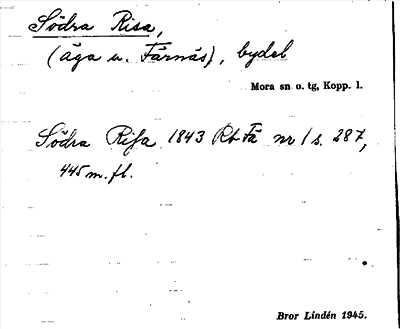 Södra Risa,
(äga u. Färnäs), bydel
Mora sn o. tg, Kopp. l.
Södra Risa 1843 Rb Fä nr 1 s. 287,
445 m. fl.
Bror Lindén 1945.